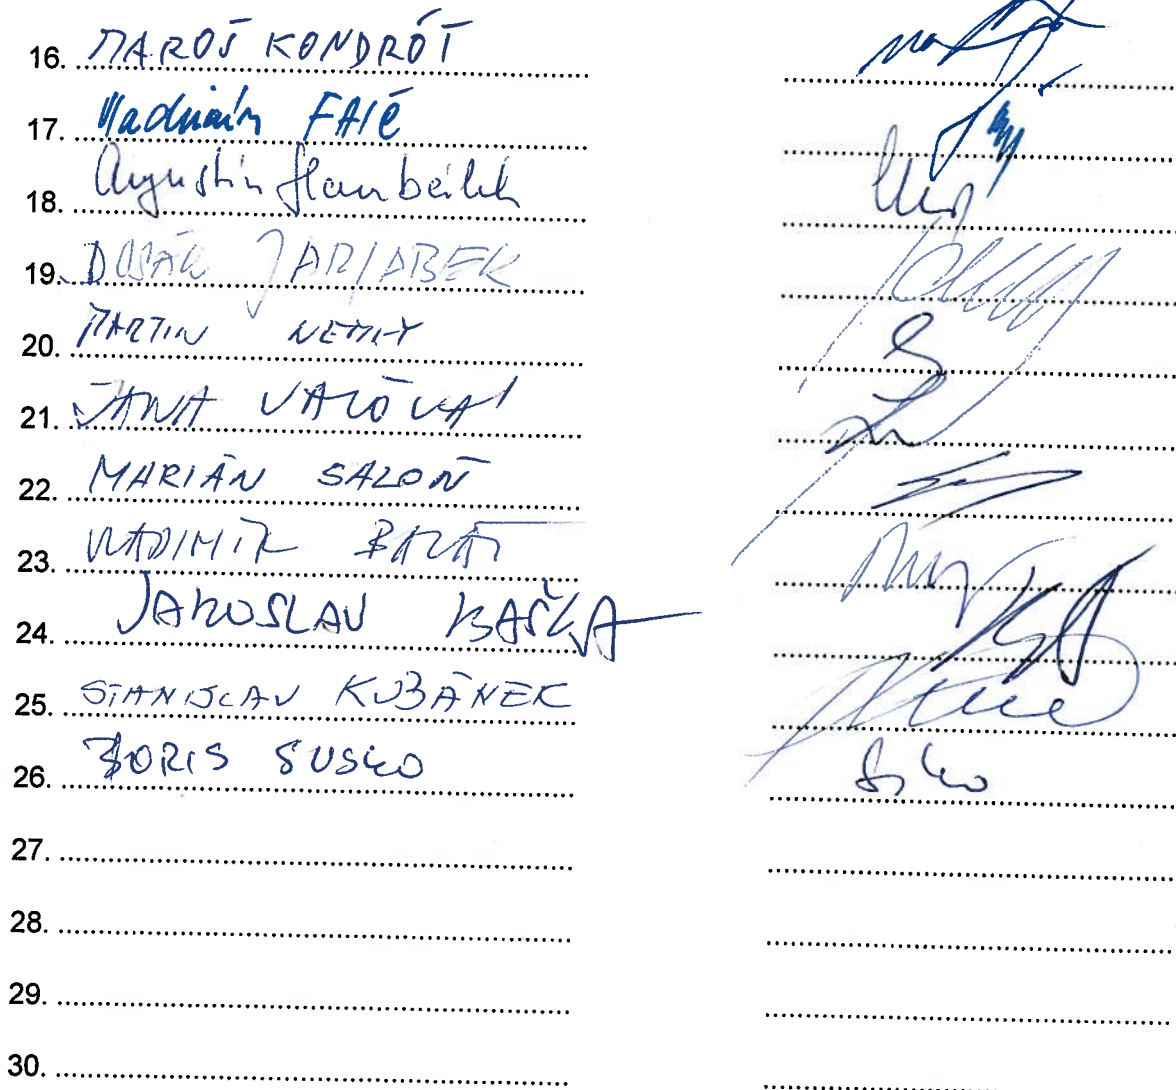 16. MAROŠ KONDRÓT
17. Vladimír FAIČ
18. Augustín Hambálek
19. DUŠAN JARJABEK
20. MARTIN NEMKY
21. JANA VAĽOVÁ
22. MARIÁN SALOŇ
23. VLADIMÍR BALÁŽ
24. JAROSLAV BAŠKA
25. STANISLAV KUBÁNEK
26. BORIS SUSKO
27.
28.
29.
30.